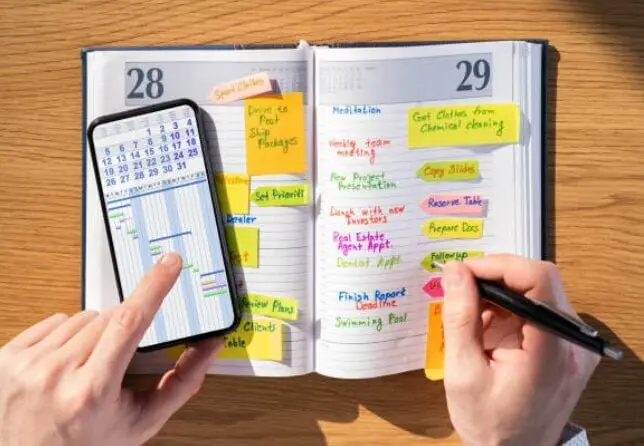 28
29
Sport Clothes
Drive to
Post
Ship
Packages
Set Priorit
Dealer
Review Plans
Clients
Table
Meditation
Weekly team
meeting
New Project
Presentation
Lunch with new
Investors
Real Estate
Agent Appt.
Dentist Appt.
Finish Report
Deadline
Swimming Pool
Get Clothes from
Chemical cleaning
Copy Slides
Reserve Table
Prepare Docs
Follow up
1 2 3 4
5 6 7 8 9 10 11
12 13 14 15 16 17 18
19 20 21 22 23 24 25
26 27 28 29 30 31